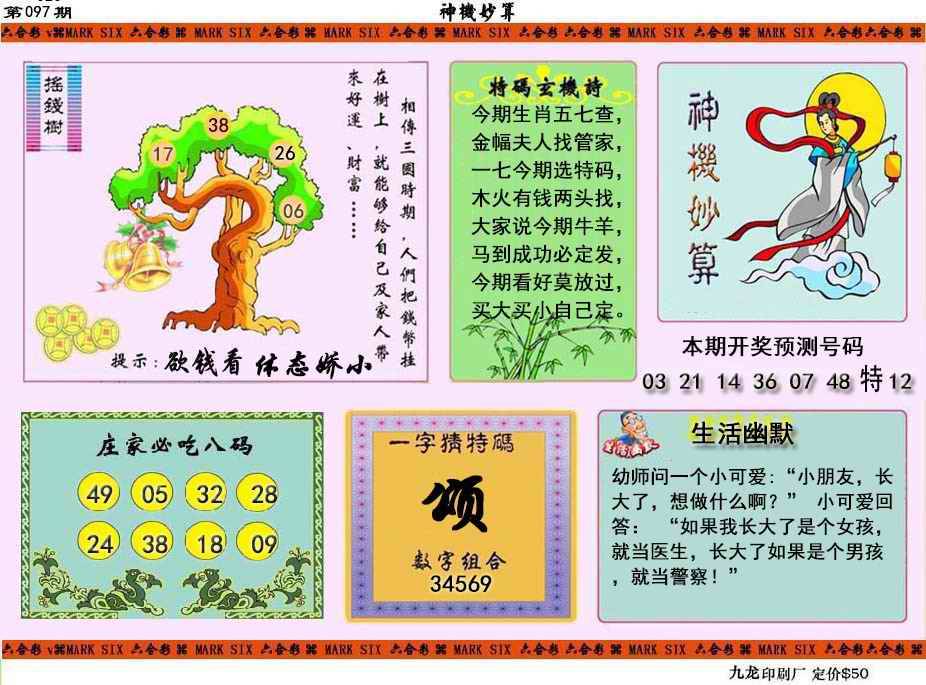 第097期
神機妙算
六合彩 MARK SIX 六合彩 MARK SIX 六合彩 MARK SIX 六合彩 MARK SIX 六合彩 MARK SIX 六合彩 MARK SIX 六合彩 MARK SIX 六合彩六合彩
搖錢樹
38
17
26
06
相傳三國時期，人們把錢幣挂
在樹上，就能够给自己及家人帶
來好運、財富……
提示：欲钱看 体态娇小
特碼玄機詩
今期生肖五七查，
金幅夫人找管家，
一七今期选特码，
木火有钱两头找，
大家说今期牛羊，
马到成功必定发，
今期看好莫放过，
买大买小自己定。
神機妙算
本期开奖预测号码
03 21 14 36 07 48 特 12
庄家必吃八码
49 05 32 28
24 38 18 09
一字猜特碼
颂
数字组合
34569
生活幽默
生活幽默
幼师问一个小可爱：“小朋友，长
大了，想做什么啊？” 小可爱回
答： “如果我长大了是个女孩，
就当医生，长大了如果是个男孩
，就当警察！”
六合彩 MARK SIX 六合彩 MARK SIX 六合彩 MARK SIX 六合彩 MARK SIX 六合彩 MARK SIX 六合彩 MARK SIX 六合彩 MARK SIX 六合彩六合彩
九龙印刷厂 定价$50